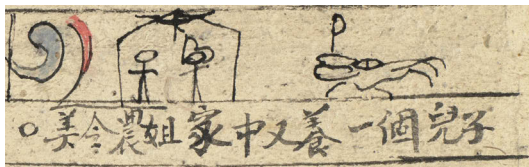 美令農姐家中又養一個兒子